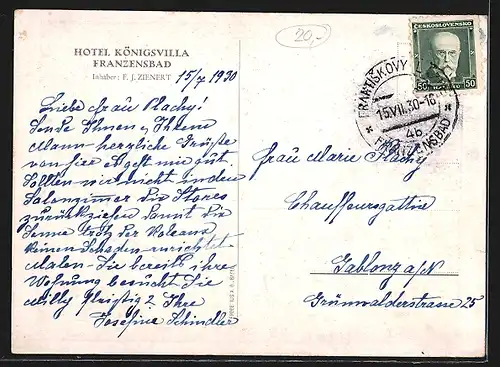 20,-
HOTEL KÖNIGSVILLA
FRANZENSBAD
Inhaber: F. J. ZIENERT
15/7 1930
Liebe Frau Plachy!
Sende Ihnen u. Ihrem
Mann herzliche Grüße
von hier es geht mir gut.
Sollten wir nicht in den
Salonzimer die Stores
zurückziehen damit die
Sonne trotz der Volants
keinen Schaden anrichtet
Malen Sie bereits ihre
Wohnung besucht Sie
Milly fleißig? Ihre
Josefine Schindler
ČESKOSLOVENSKO
50 50
FRANTIŠKOVY
15.VII.30-16
4b
FRANZENSBAD
Frau Marie Plachy
Chauffeursgattin
Gablonz a/N
Grünwalderstrasse 25